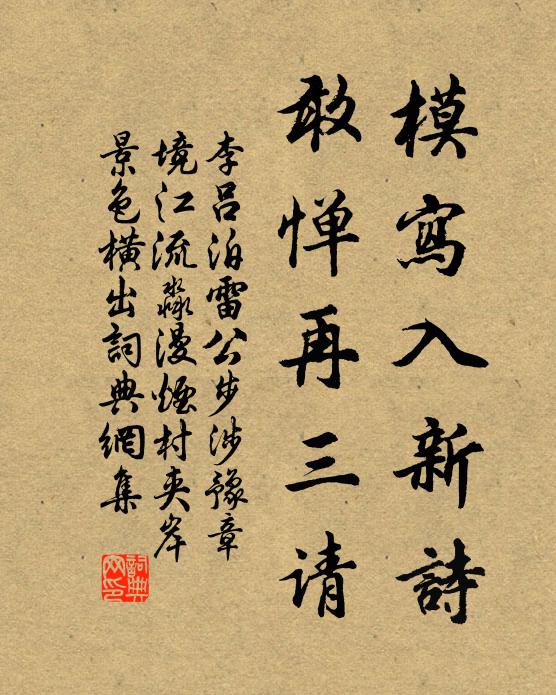 模寫入新詩
敢惮再三请
李吕泊雷公步涉豫章
境江流淼漫煙村夹岸
景色橫出詞典網集
詞典網印